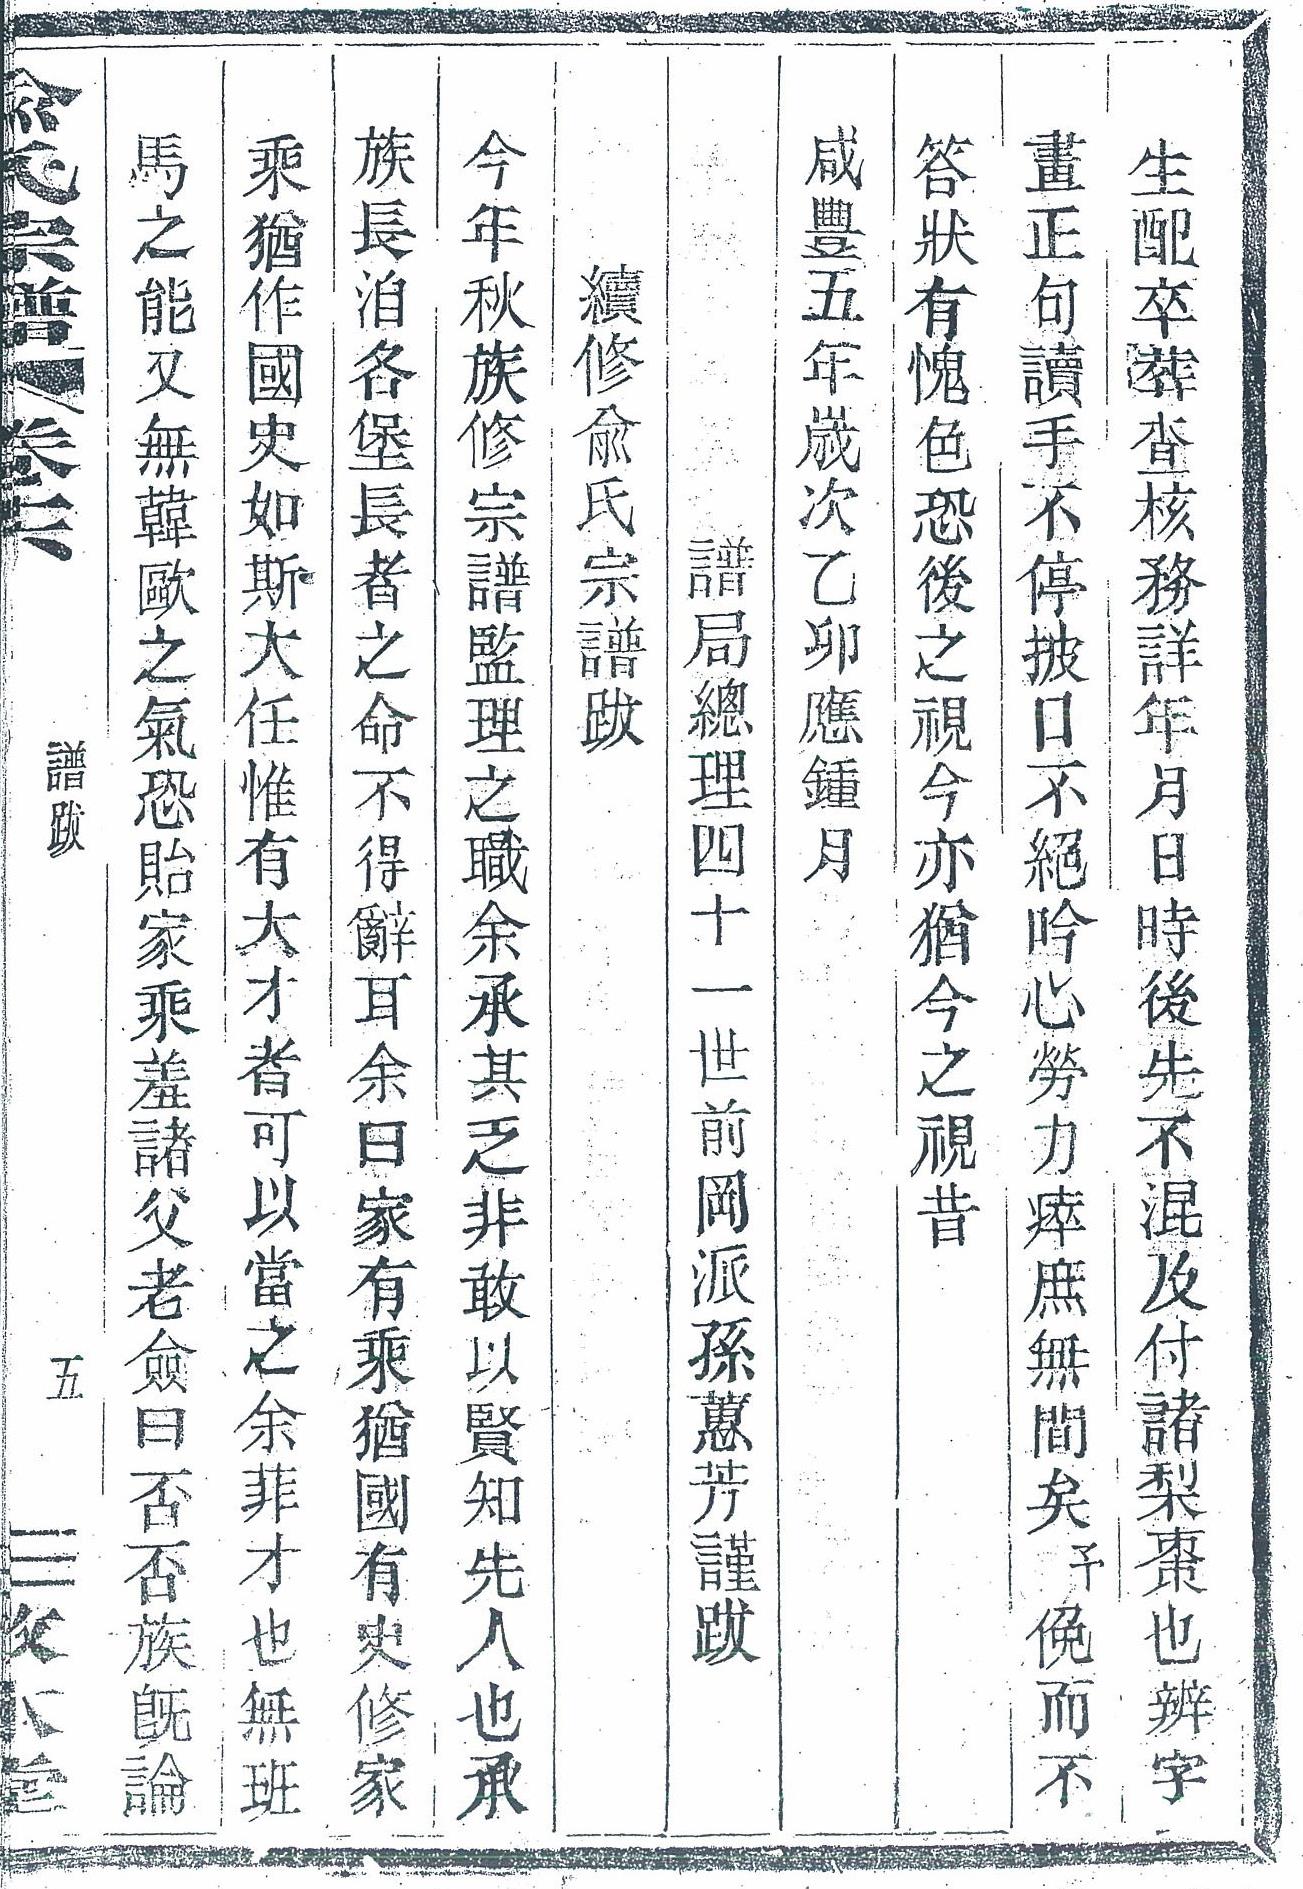 生配卒葬查核務詳年月日時後先不混及付諸梨棗也辨字
畫正句讀手不停披口不絕吟心勞力瘁庶無間矣予俛而不
答狀有愧色恐後之視今亦猶今之視昔
咸豐五年歲次乙卯應鍾月
譜局總理四十一世前岡派孫蕙芳謹跋
續修俞氏宗譜跋
今年秋族修宗譜監理之職余承其乏非敢以賢知先人也承
族長洎各堡長者之命不得辭耳余曰家有乘猶國有史修家
乘猶作國史如斯大任惟有大才者可以當之余菲才也無班
馬之能又無韓歐之氣恐貽家乘羞諸父老僉曰否否族旣論
俞氏宗譜 卷六
譜跋
五